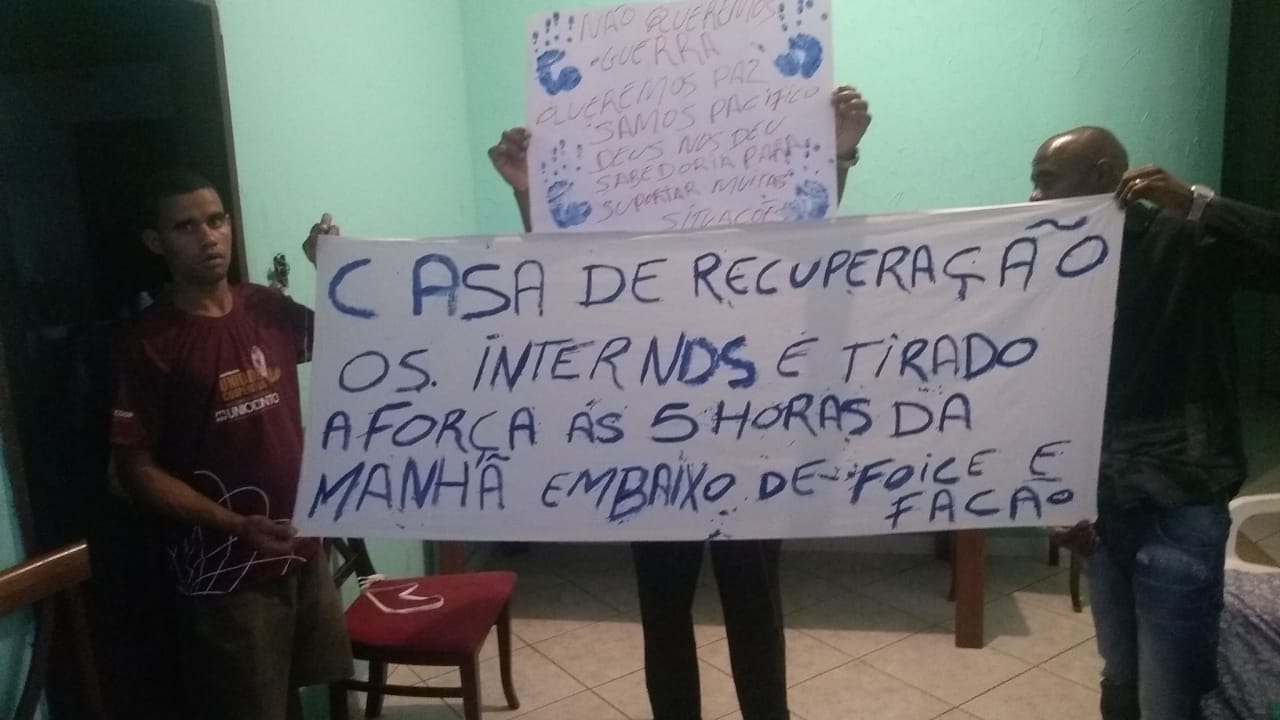 NÃO QUEREMOS
GUERRA
QUEREMOS PAZ
SAMOS PACIFICO
DEUS NOS DEU
SABEDORIA PARA
SUPORTAR MUITAS
SITUAÇÕE
CASA DE RECUPERAÇÃO
OS. INTERNOS E TIRADO
A FORÇA ÁS 5 HORAS DA
MANHÃ EMBAIXO DE FOICE E
FACÃO
UNIOCINTO